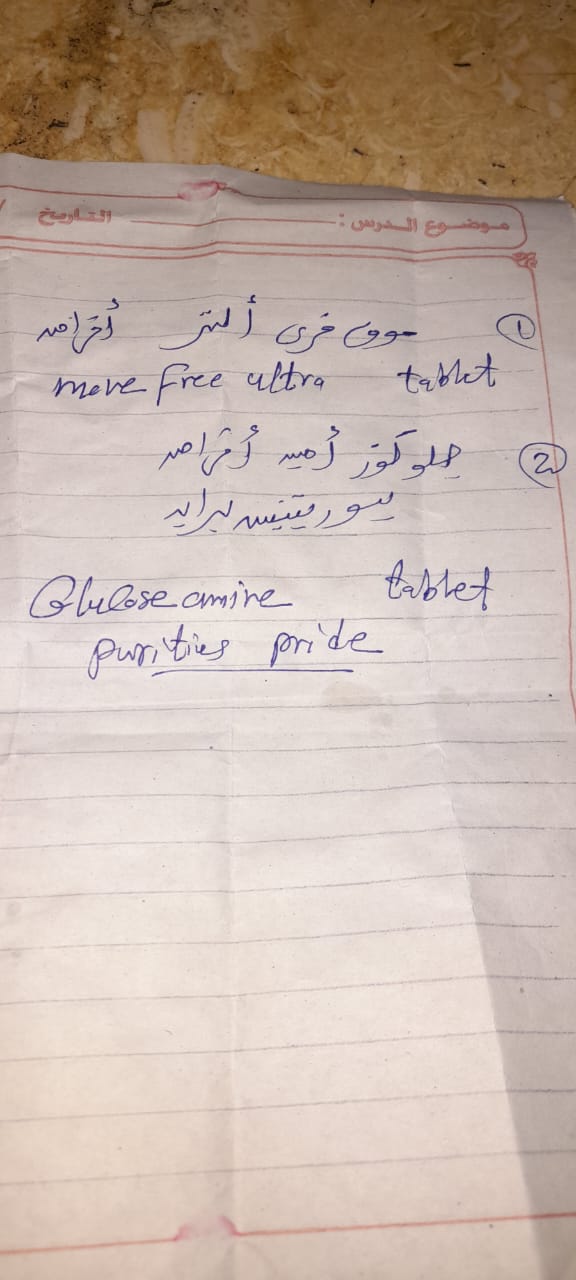 موضوع الدرس : التاريخ /
① موف فرى ألتر أقراص
move free ultra tablet
② جلوكوز أمين أقراص
بيوريتنيس برايد
Glulose amine tablet
purities pride